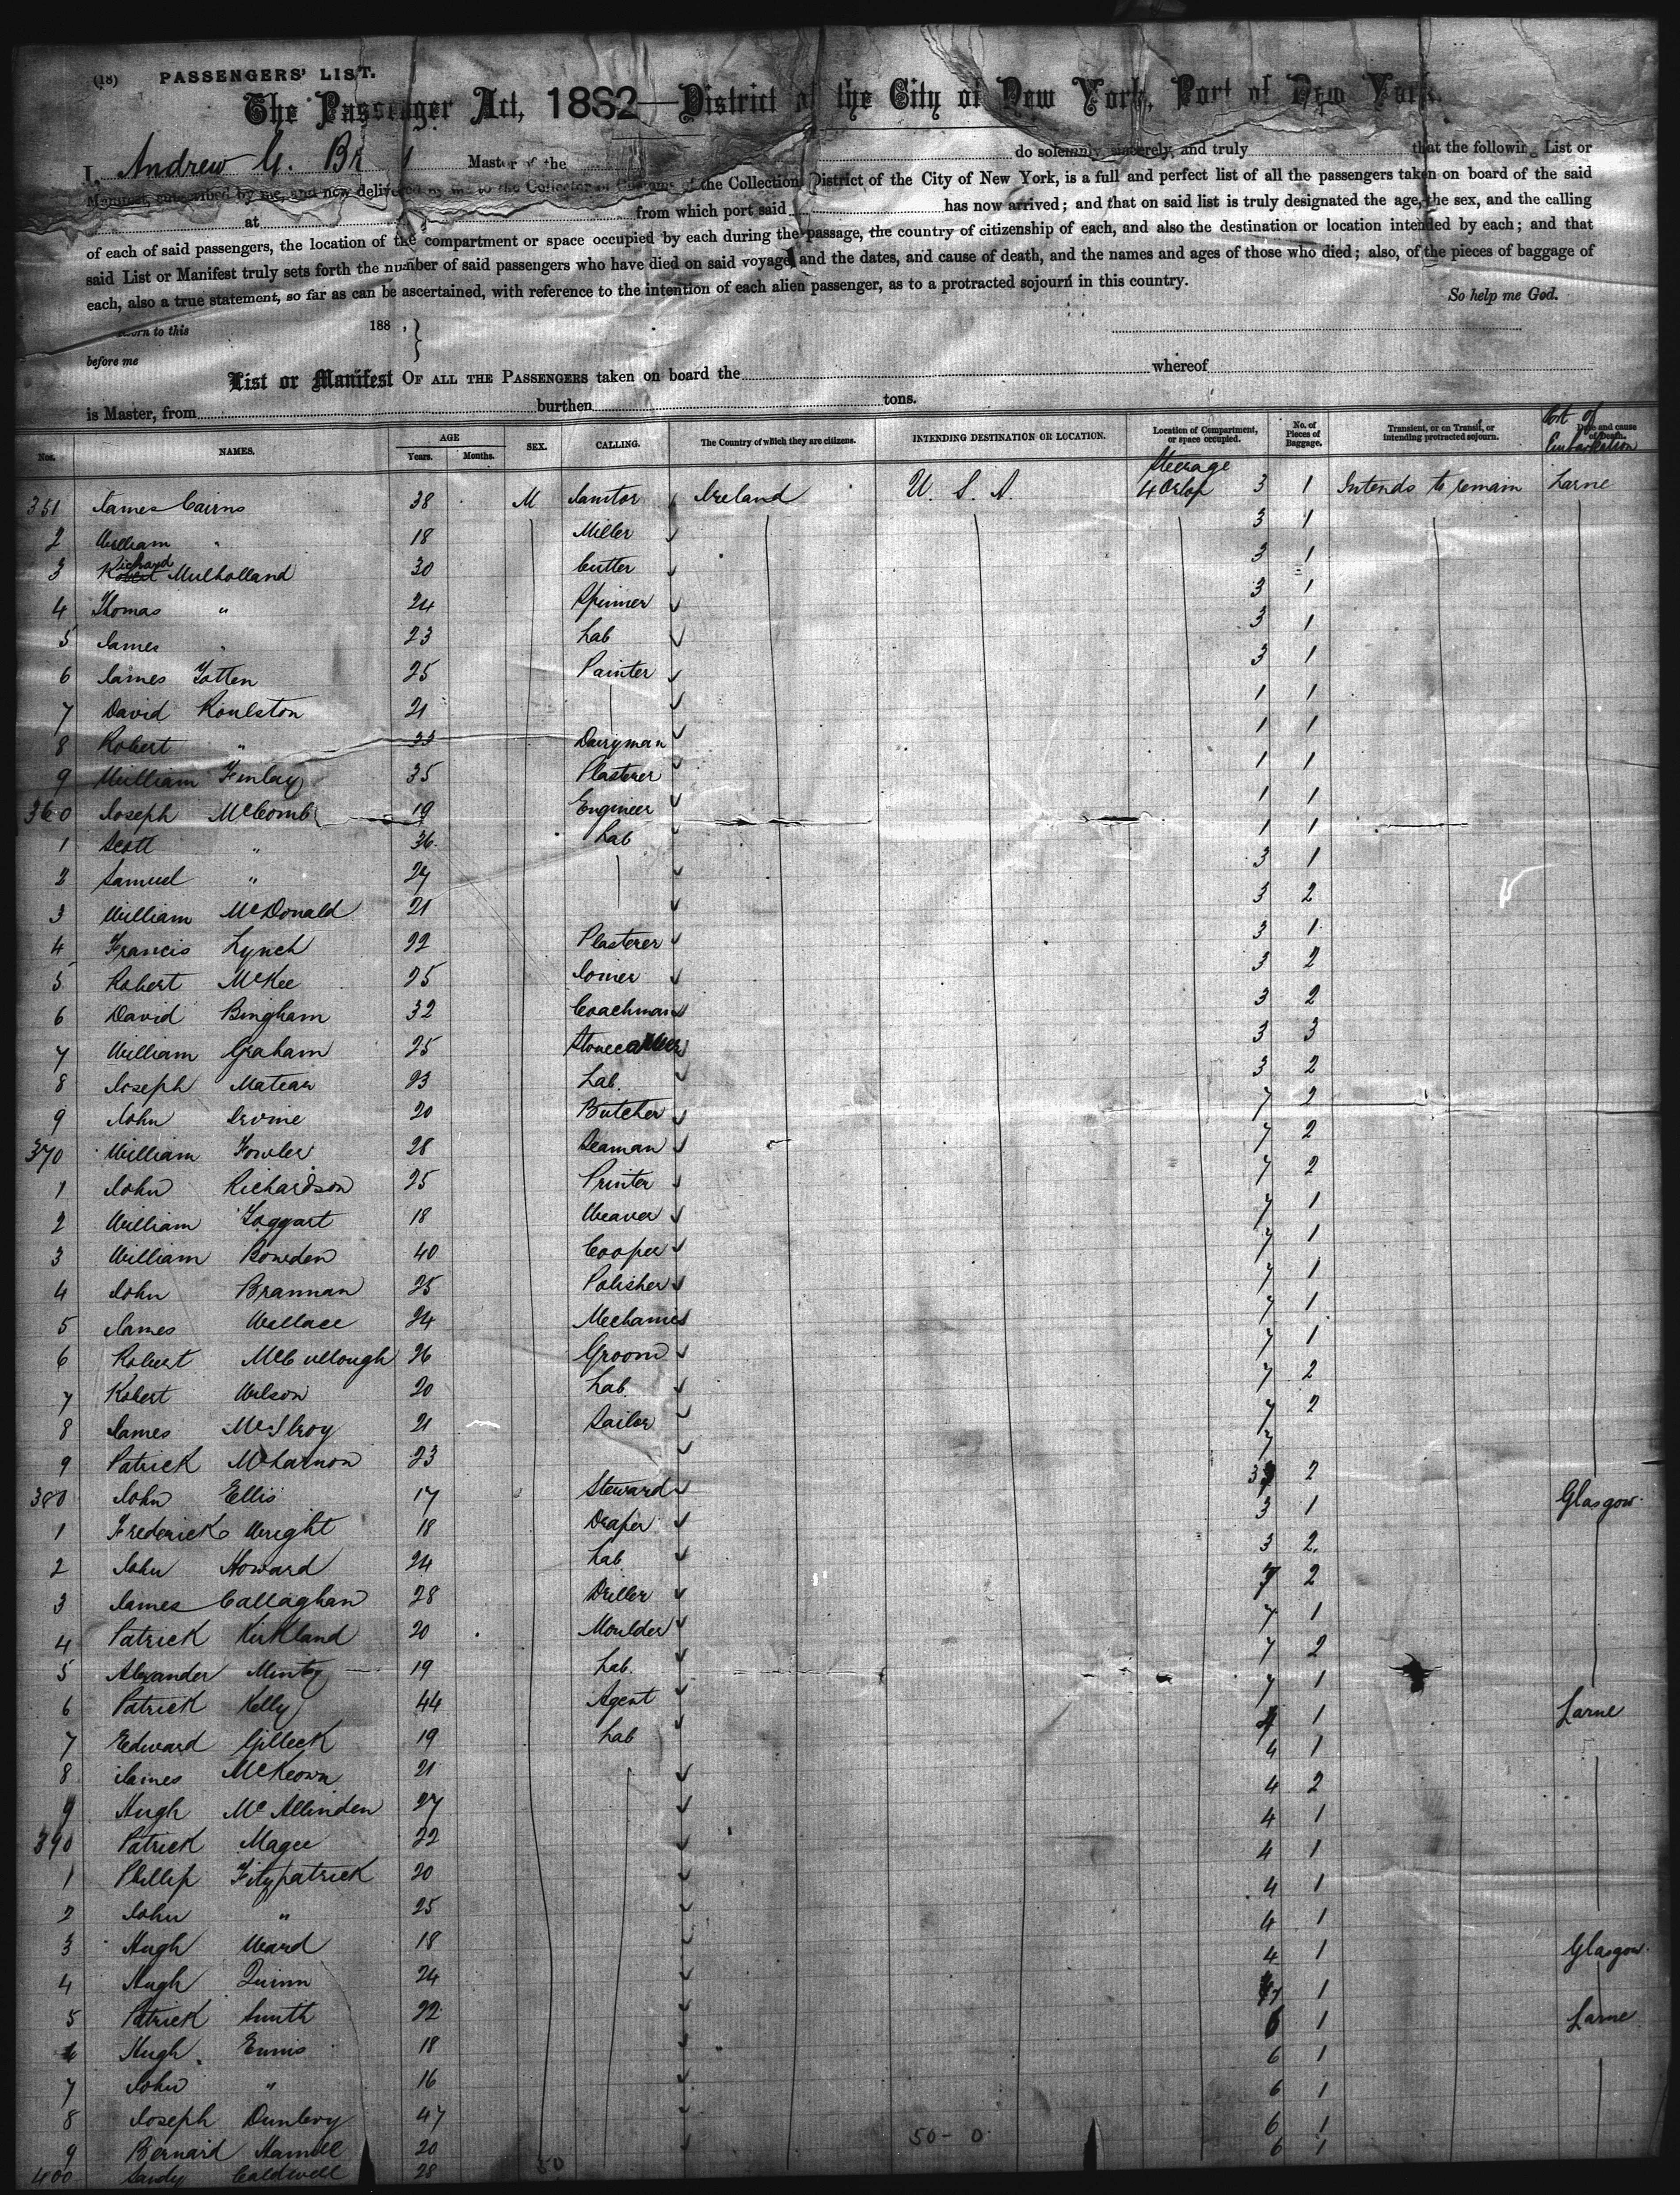 (18) PASSENGERS' LIST.
The Passenger Act, 1882—District of the City of New York, Port of New York.
I, Andrew G. Master of the do solemnly, sincerely, and truly that the following List or
Manifest, subscribed by me, and now delivered by me to the Collector of Customs of the Collection District of the City of New York, is a full and perfect list of all the passengers taken on board of the said
at from which port said has now arrived; and that on said list is truly designated the age, the sex, and the calling
of each of said passengers, the location of the compartment or space occupied by each during the passage, the country of citizenship of each, and also the destination or location intended by each; and that
said List or Manifest truly sets forth the number of said passengers who have died on said voyage, and the dates, and cause of death, and the names and ages of those who died; also, of the pieces of baggage of
each, also a true statement, so far as can be ascertained, with reference to the intention of each alien passenger, as to a protracted sojourn in this country.
So help me God.
to this 188 .
before me
List or Manifest OF ALL THE PASSENGERS taken on board the whereof
is Master, from burthen tons.
Nos. NAMES. AGE Years. Months. SEX. CALLING. The Country of which they are citizens. INTENDING DESTINATION OR LOCATION. Location of Compartment, or space occupied. No. of Pieces of Baggage. Transient, or on Transit, or intending protracted sojourn. Date and cause of Death. Port of Embarkation
351 James Cairns 38 M Janitor Ireland U. S. A. Steerage 4 Orlop 3 1 Intends to remain Larne
2 William " 18 Miller 3 1
3 Richard Mulholland 30 Cutter 3 1
4 Thomas " 24 Spinner 3 1
5 James " 23 Lab 3 1
6 James Totten 25 Painter 3 1
7 David Roulston 21 1 1
8 Robert " 33 Dairyman 1 1
9 William Finlay 35 Plasterer 1 1
360 Joseph McComb 19 Engineer 1 1
1 Scott " 36 Lab 1 1
2 Samuel " 27 3 1
3 William McDonald 21 3 2
4 Francis Lynch 22 Plasterer 3 1
5 Robert McKee 25 Joiner 3 2
6 David Bingham 32 Coachman 3 2
7 William Graham 25 3 3
8 Joseph Matear 23 Lab. 3 2
9 John Irvine 20 Butcher 7 2
370 William Fowler 28 Seaman 7 2
1 John Richardson 25 Printer 7 2
2 William Taggart 18 Weaver 7 1
3 William Bowden 40 Cooper 7 1
4 John Brannan 25 Polisher 7 1
5 James Wallace 24 Mechanic 7 1
6 Robert McCullough 26 Groom 7 1
7 Robert Wilson 20 Lab 7 2
8 James McIlroy 21 Sailor 7 2
9 Patrick McLarnon 23 7
380 John Ellis 17 Steward 3 2 Glasgow
1 Frederick Wright 18 Draper 3 1
2 John Howard 24 Lab 3 2
3 James Callaghan 28 Driller 7 2
4 Patrick Kirkland 20 Moulder 7 1
5 Alexander Minty 19 Lab. 7 2
6 Patrick Kelly 44 Agent 7 1 Larne
7 Edward Gilleck 19 Lab 4 1
8 James McKeown 21 4 1
9 Hugh McAllinden 27 4 2
390 Patrick Magee 22 4 1
1 Phillip Fitzpatrick 20 4 1
2 John " 25 4 1
3 Hugh Ward 18 4 1 Glasgow
4 Hugh Quinn 24 4 1
5 Patrick Smith 22 1 Larne
6 Hugh Ennis 18 6 1
7 John " 16 6 1
8 Joseph Dunlevy 47 6 1
9 Bernard Hamill 20 6 1
400 Sandy Caldwell 28 6 1
50 50 - 0